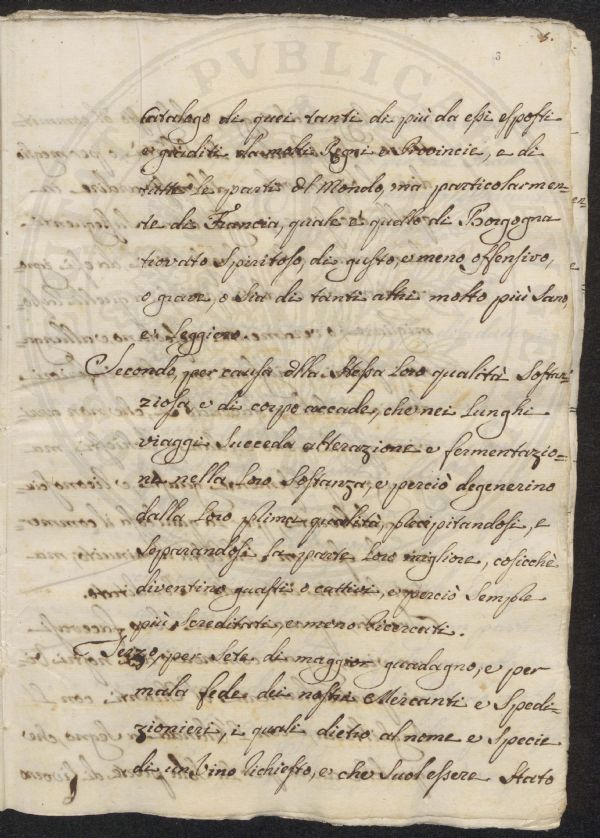 5.
6
Catalogo di quei tanti di più da essi esposti
e graditi da molti Regni e Provincie, e di
tutte le parti del Mondo, ma particolarmen=
te di Francia, quale è quello di Borgogna
trovato Spiritoso, di gusto, e meno offensivo,
o grave, o sia di tanti altri molto più Sano,
e Leggiero.
Secondo, per causa della stessa loro qualità Sostan=
ziosa e di corpo accade, che nei Lunghi
viaggi Succeda alterazione e fermentazio=
ne nella loro Sostanza, e perciò degenerino
dalla loro prima qualità, precipitandosi, e
Separandosi la parte loro migliore, cosicchè
diventino guasti o cattivi, e perciò Sempre
più Screditati, e meno Ricercati.
Terzo, per Sete di maggior guadagno, e per
mala fede dei nostri Mercanti e Spedi=
zionieri, i quali dietro al nome e Specie
di un Vino richiesto, e che Suol essere Stato
PVBLICA